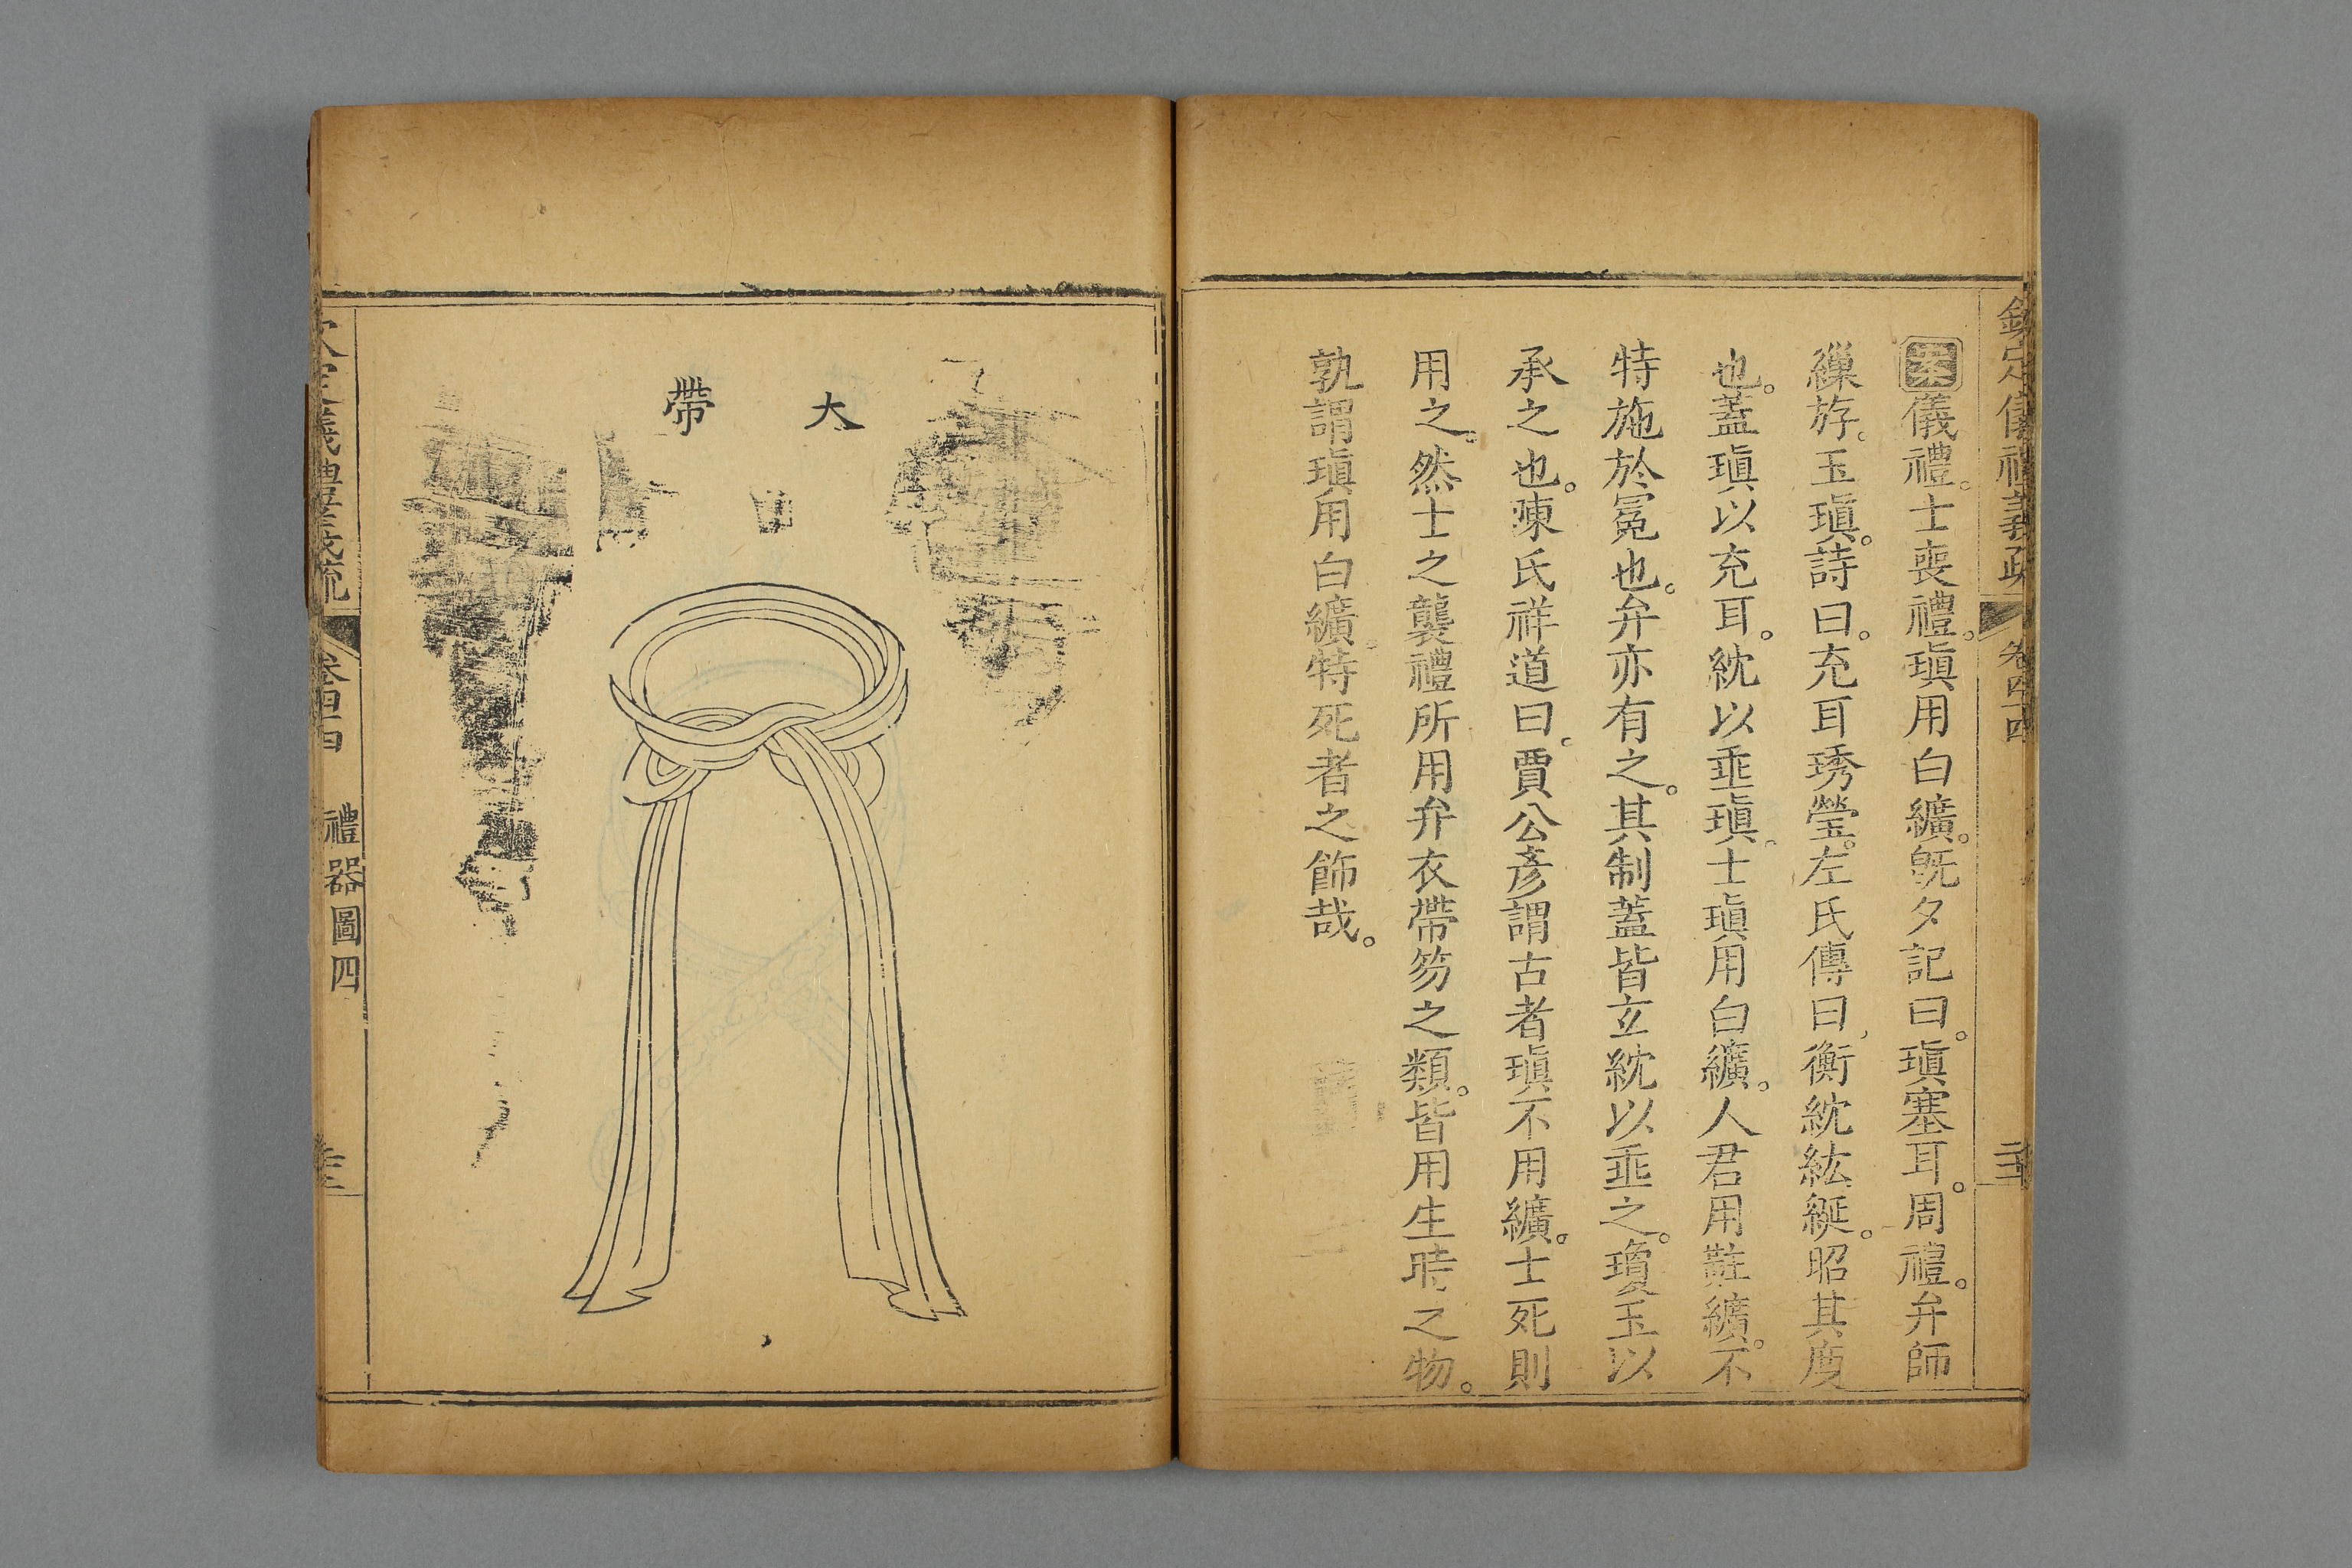 欽定儀禮義疏 卷四十四
案儀禮。士喪禮。瑱用白纊。旣夕記曰。瑱塞耳。周禮。弁師
繅斿。玉瑱。詩曰。充耳琇瑩。左氏傳曰、衡紞紘綖。昭其度
也。蓋瑱以充耳。紞以垂瑱。士瑱用白纊。人君用黈纊。不
特施於冕也。弁亦有之。其制蓋皆玄紞以垂之。瓊玉以
承之也。陳氏祥道曰。賈公彥謂古者瑱不用纊。士死則
用之。然士之襲禮所用弁衣帶笏之類。皆用生時之物。
孰謂瑱用白纊。特死者之飾哉。
大帶
義 禮 義 疏 禮器圖四